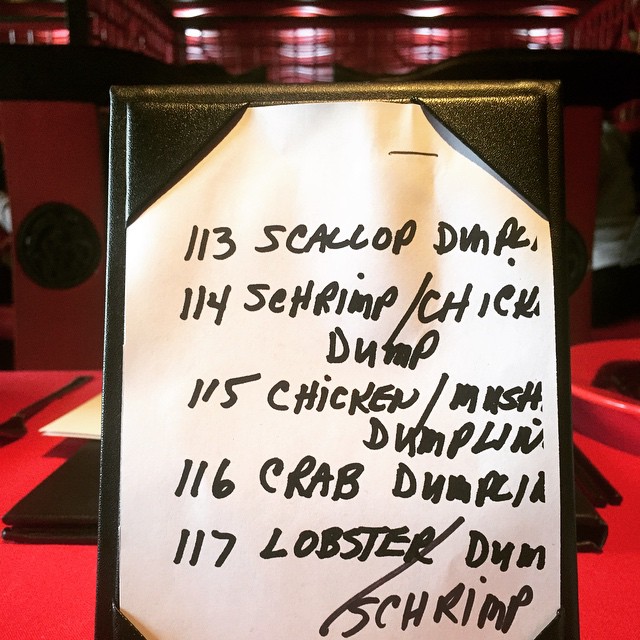 113 SCALLOP DUMPL.
114 SCHRIMP/CHICK
DUMP
115 CHICKEN/MUSH
DUMPLIN
116 CRAB DUMPLIN
117 LOBSTER/DUM
SCHRIMP